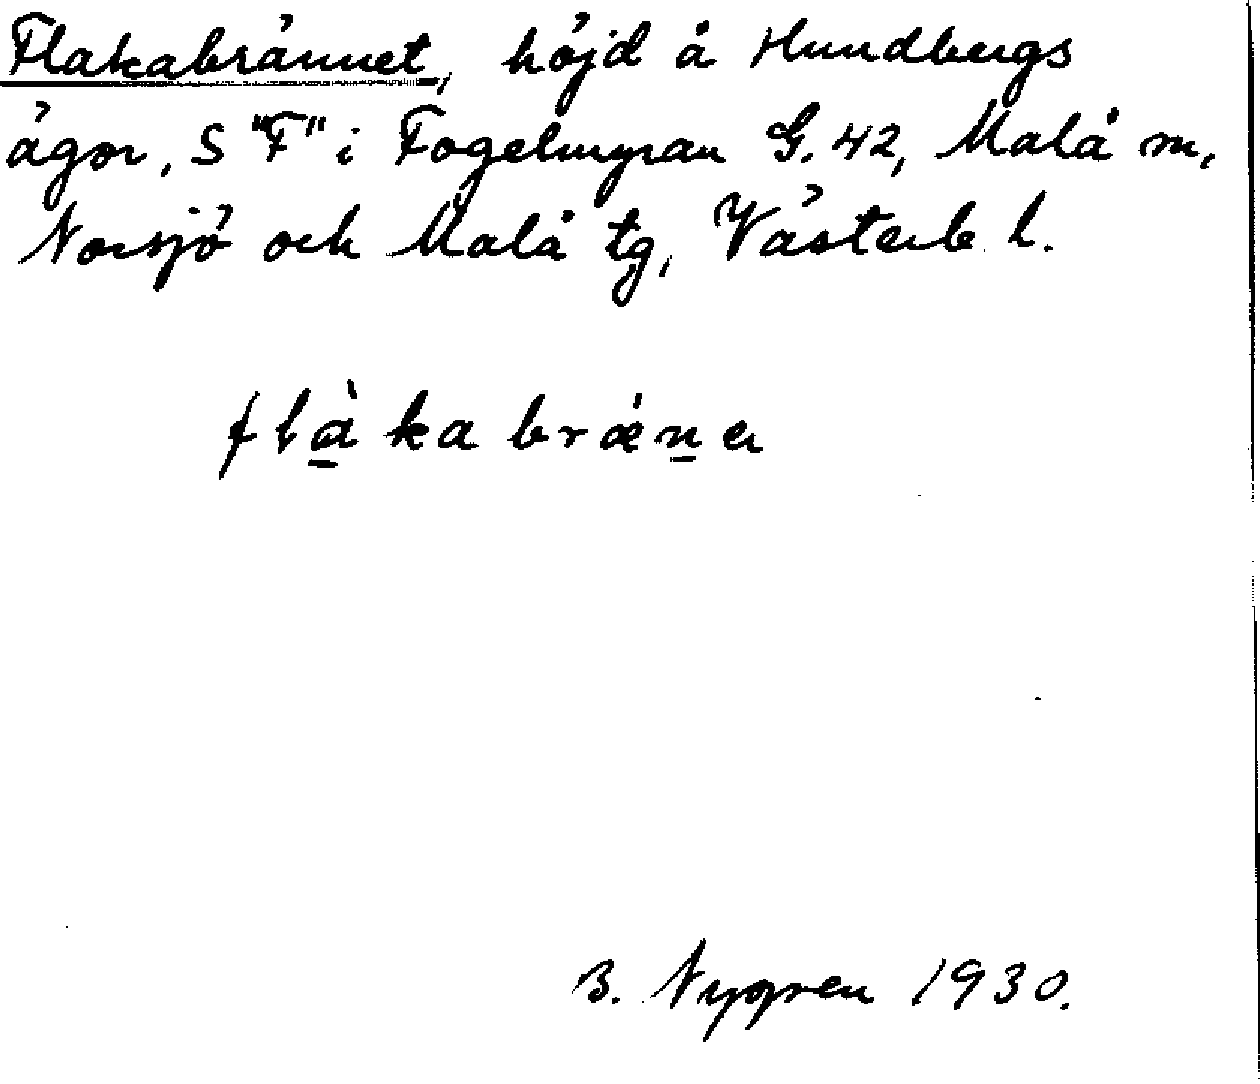 Flakabrännet, höjd å Hundbergs
ägor, S "F" i Fogelmyran G. 42, Malå sn,
Norsjö och Malå tg, Västerb. l.
flà̱ka brǽṉa
B. Nygren 1930.